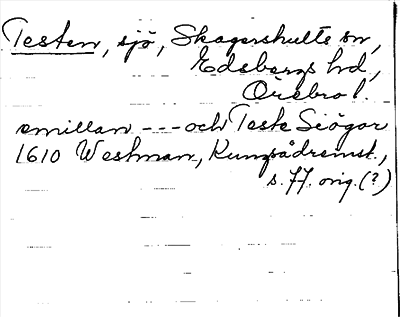 Testen, sjö, Skagershults sn,
Edsbergs hd,
Örebro l.
emillan --- och Teste Siögar
1610 Westman, Kungsådremst.,
s. 77. orig. (?)